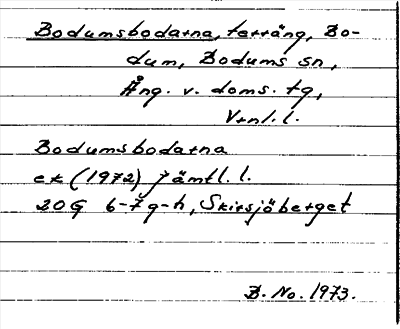 Bodumsbodarna, terräng, Bo-
dum, Bodums sn,
Ång. v. doms. tg,
Vrnl. l.
Bodumsbodarna
ek (1972) Jämtl. l.
20G 6-7 g-h, Skirsjöberget
B. No. 1973.